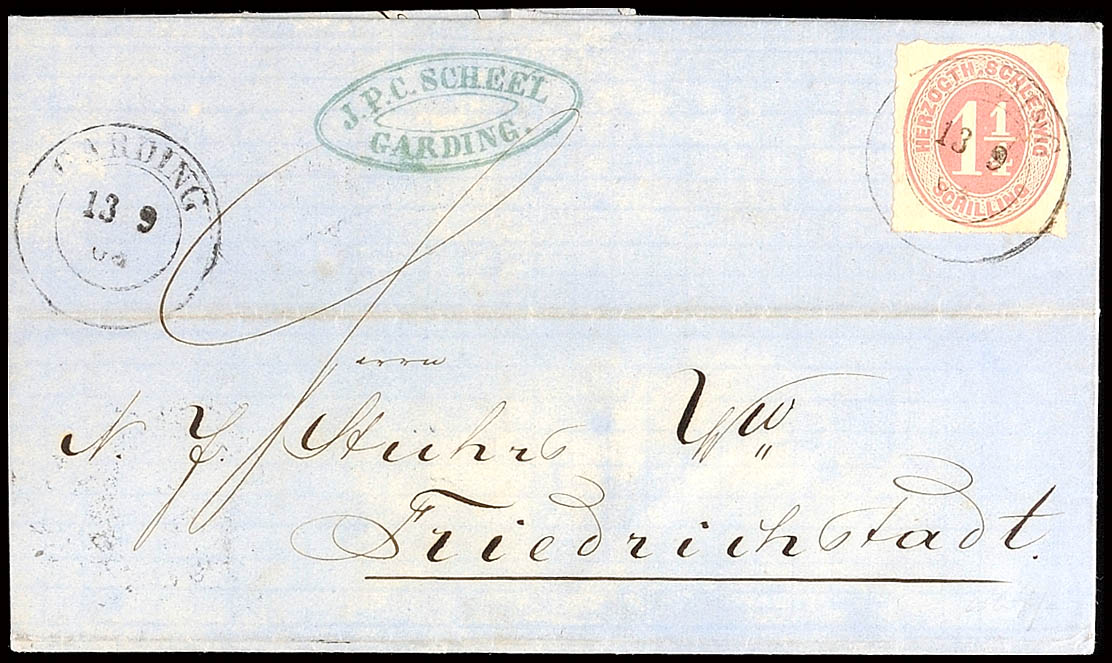 J. P. C. SCHEEL
GARDING.
GARDING
13 9
HERZOGTH. SCHLESWIG
1 1/4
SCHILLING
13 9
N. J. Stuhrs Wwe
Friedrichstadt.